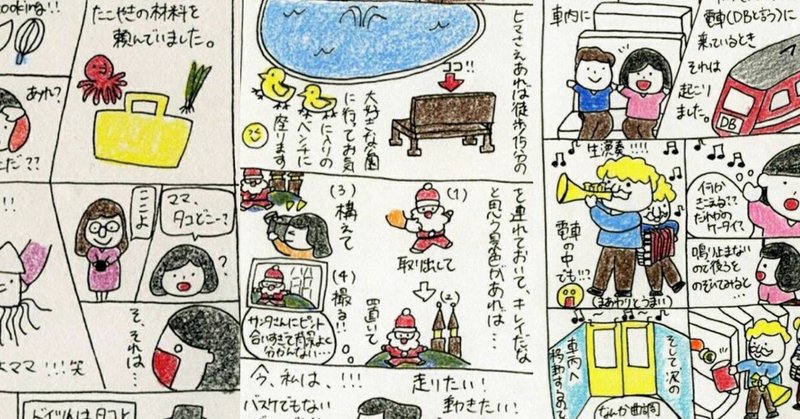 ooking!!
たこやきの材料を
頼んでいました。
あれ?
だ??
ここよ
ママ、
タコどこ〜?
?
そ、それは…
ママ!!!笑
ドイツ人はタコと
ヒマさえあれば徒歩15分の
大好きな園
に行ってお気
に入りの
ベンチに
座ります
ココ!!
を連れておいて、キレイだな
と思う景色があれば…
(1)
取り出して
(2)
置いて
(3)
構えて
(4)
撮る!!
サンタさんにピント
今、私は、!!!
走りたい!
動きたい!
バスケでもない
車内に
電車(DBと言う)に
乗っているとき
それは
起こり
ました。
DB
生演奏!!!!
電車の中
でも!!?
(まあわりとうまい)
何か
きこえる??
だれかの
ケータイ?
鳴り止まない
ので後ろを
のぞいてみると…
そして次の
車両へ
移動するので